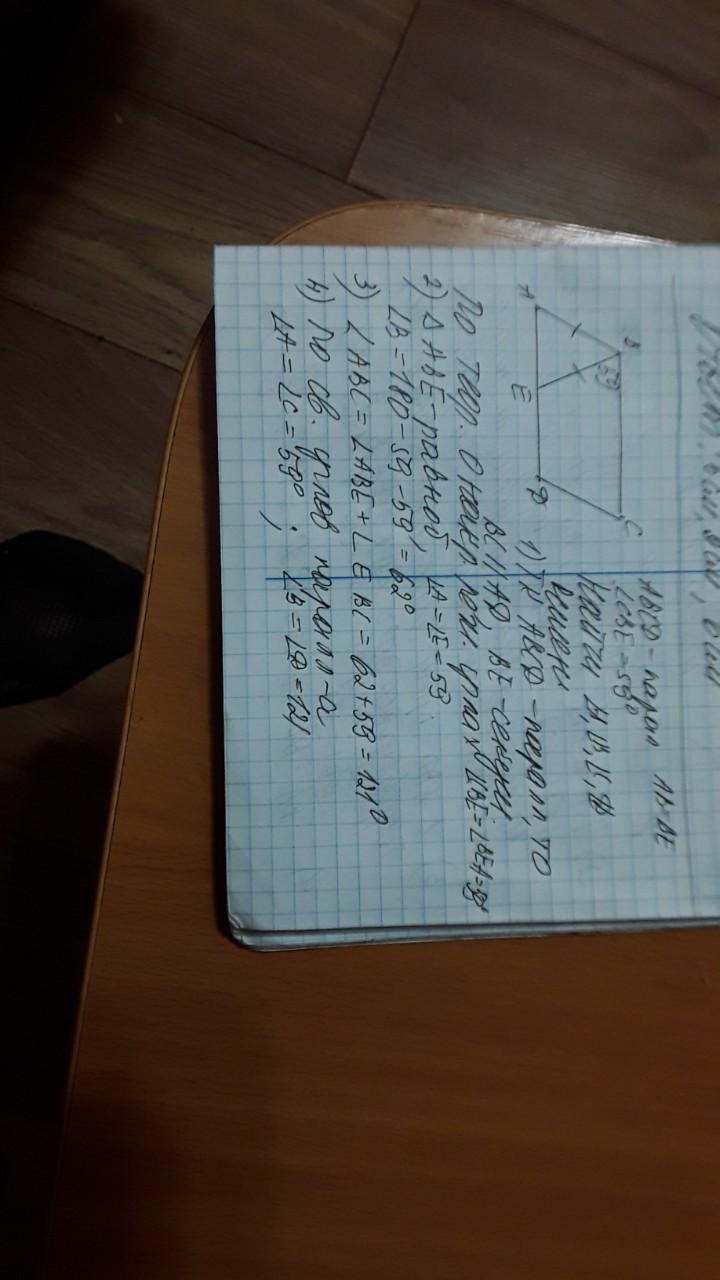 A
B
C
D
E
59
ABCD - парал AB=BE
∠CBE = 59°
Найти A, B, C, D
Решен
1) Т.к ABCD - парал, то
BC || AD BE - секущ,
По теор. О накр леж. углах ∠CBE = ∠BEA = 59°
2) Δ ABE - равноб, ∠A = ∠E = 59
∠B = 180 - 59 - 59 = 62°
3) ∠ABC = ∠ABE + ∠EBC = 62 + 59 = 121°
4) По св. углов паралл-а
∠A = ∠C = 59°; ∠B = ∠D = 121